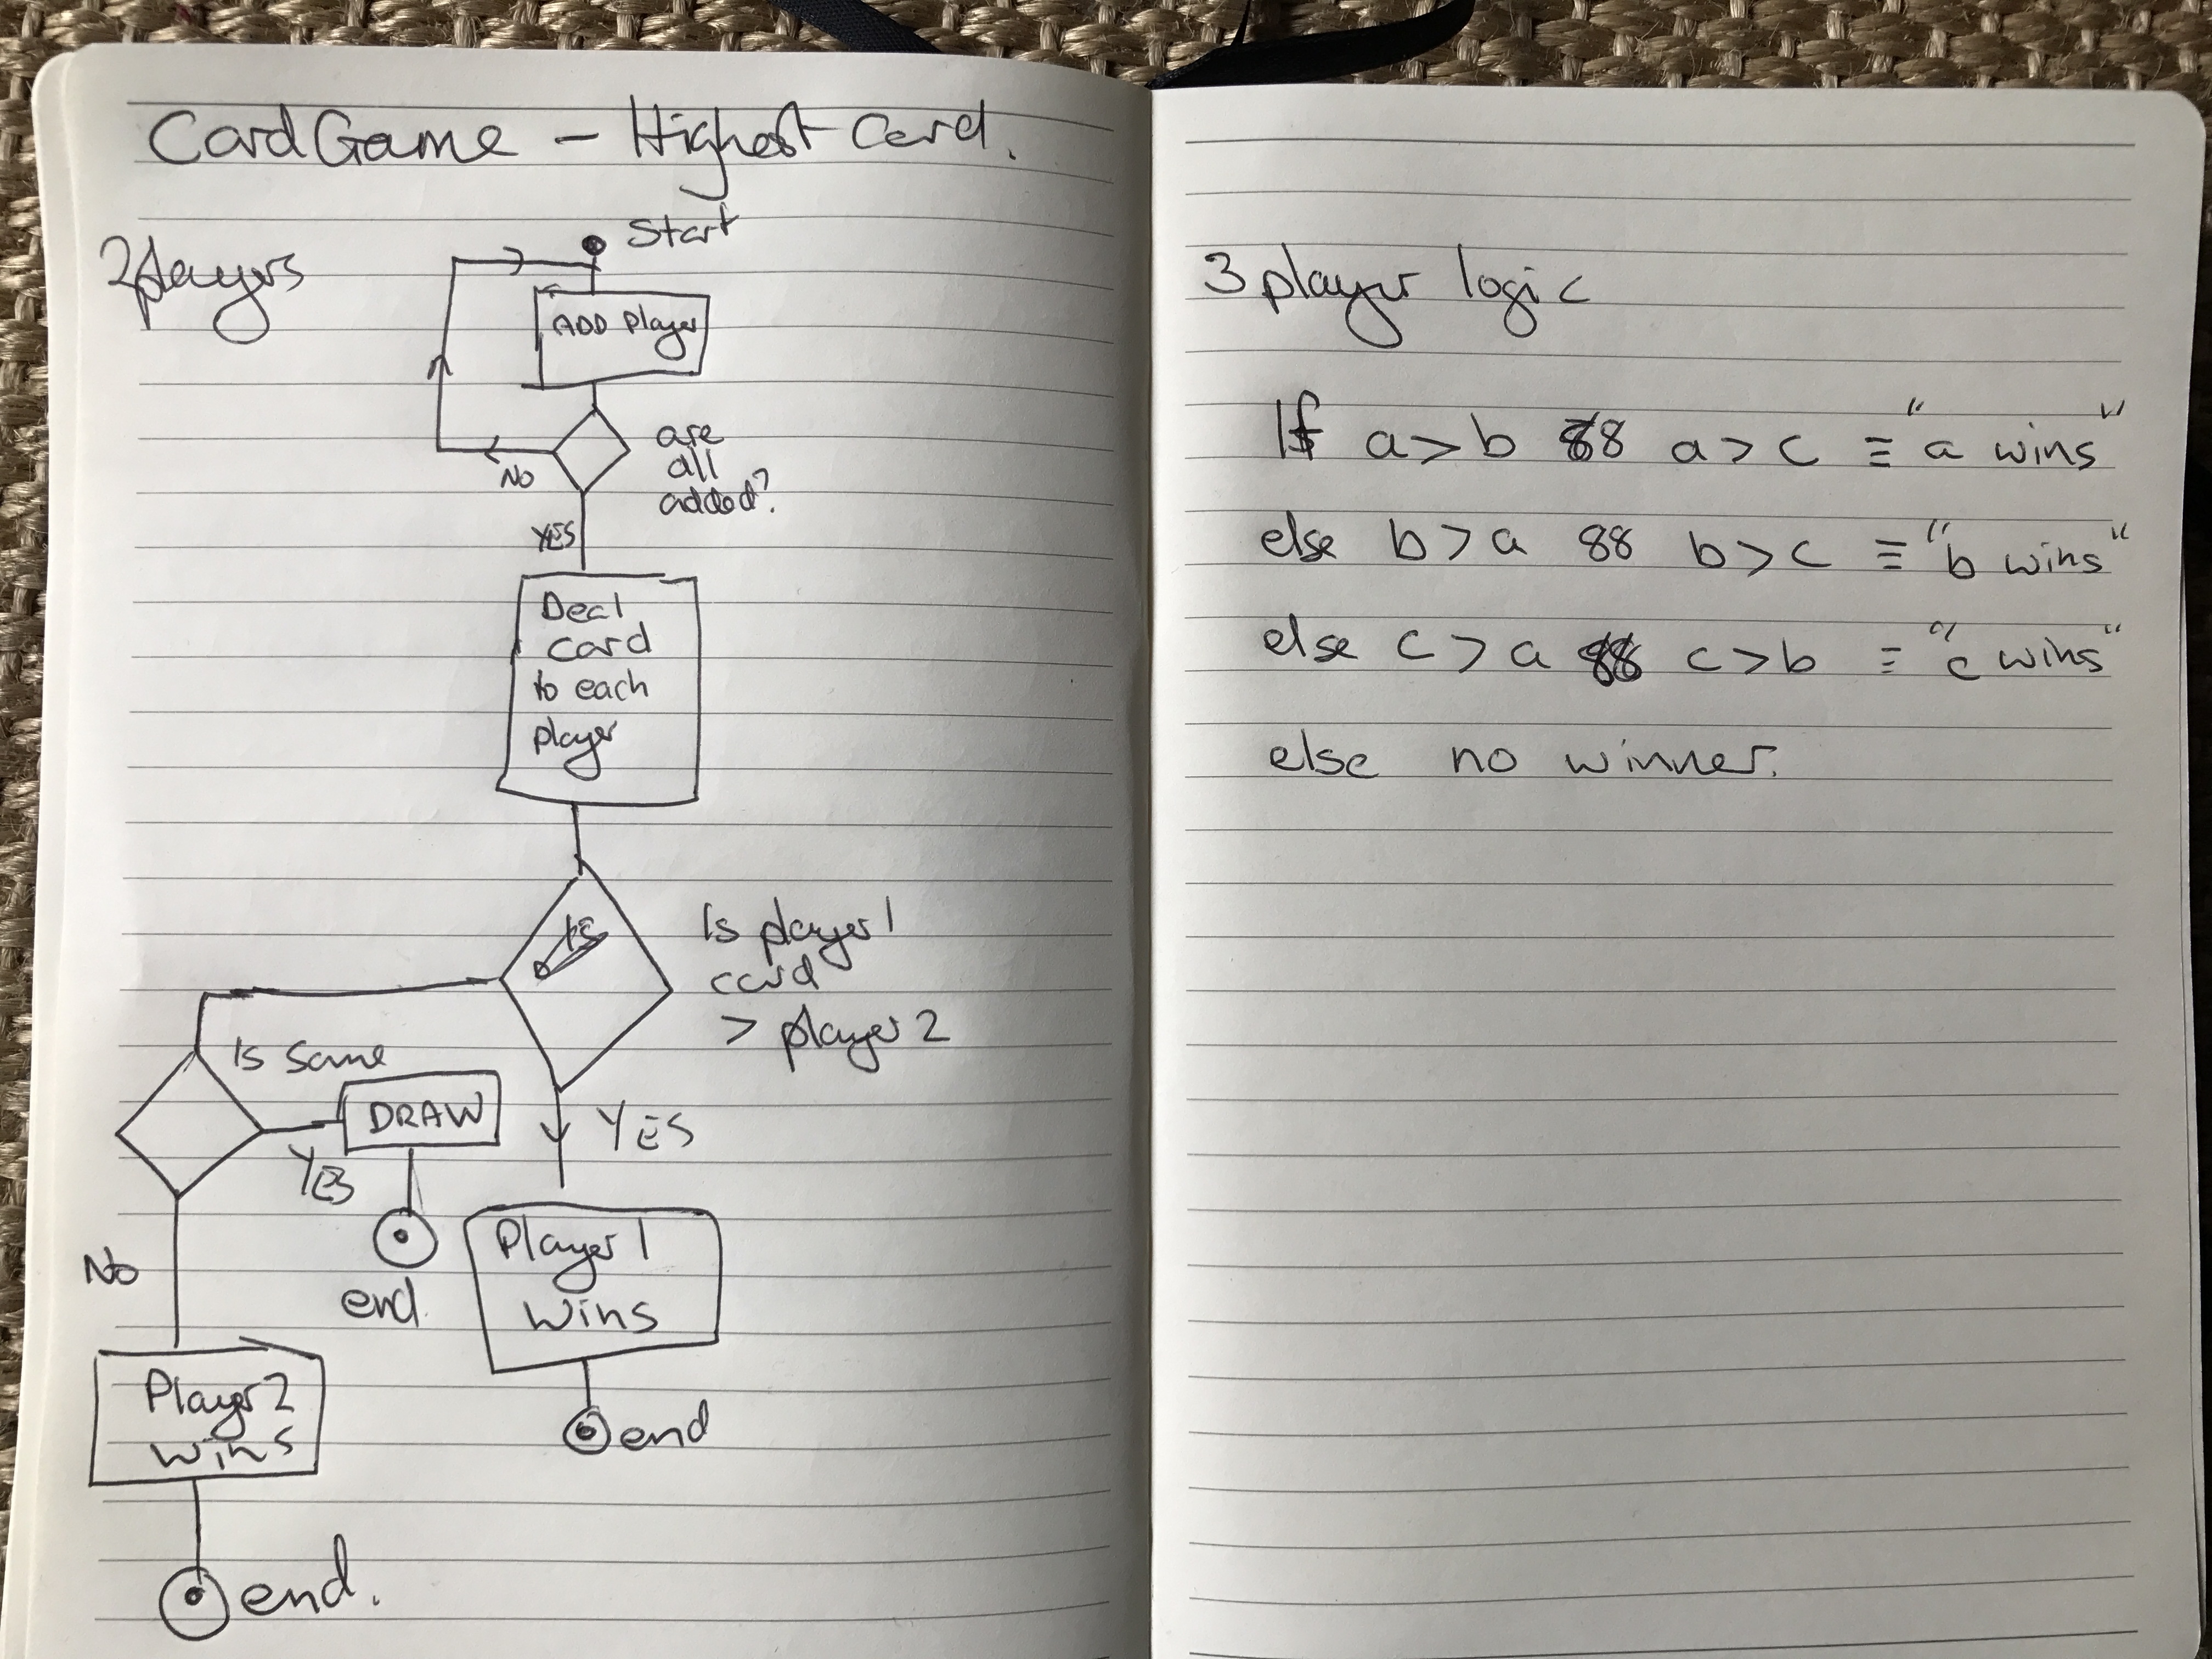 Card Game - Highest Card.
2 players
Start
ADD Player
are
all
added?
No
YES
Deal
card
to each
player
Is
Is player 1
card
> player 2
Is Same
DRAW
YES
YES
No
end.
Player 1
Wins
end
Player 2
Wins
end.
3 player logic
If a > b && a > c ≡ "a wins"
else b > a && b > c ≡ "b wins"
else c > a && c > b ≡ "c wins"
else no winner.